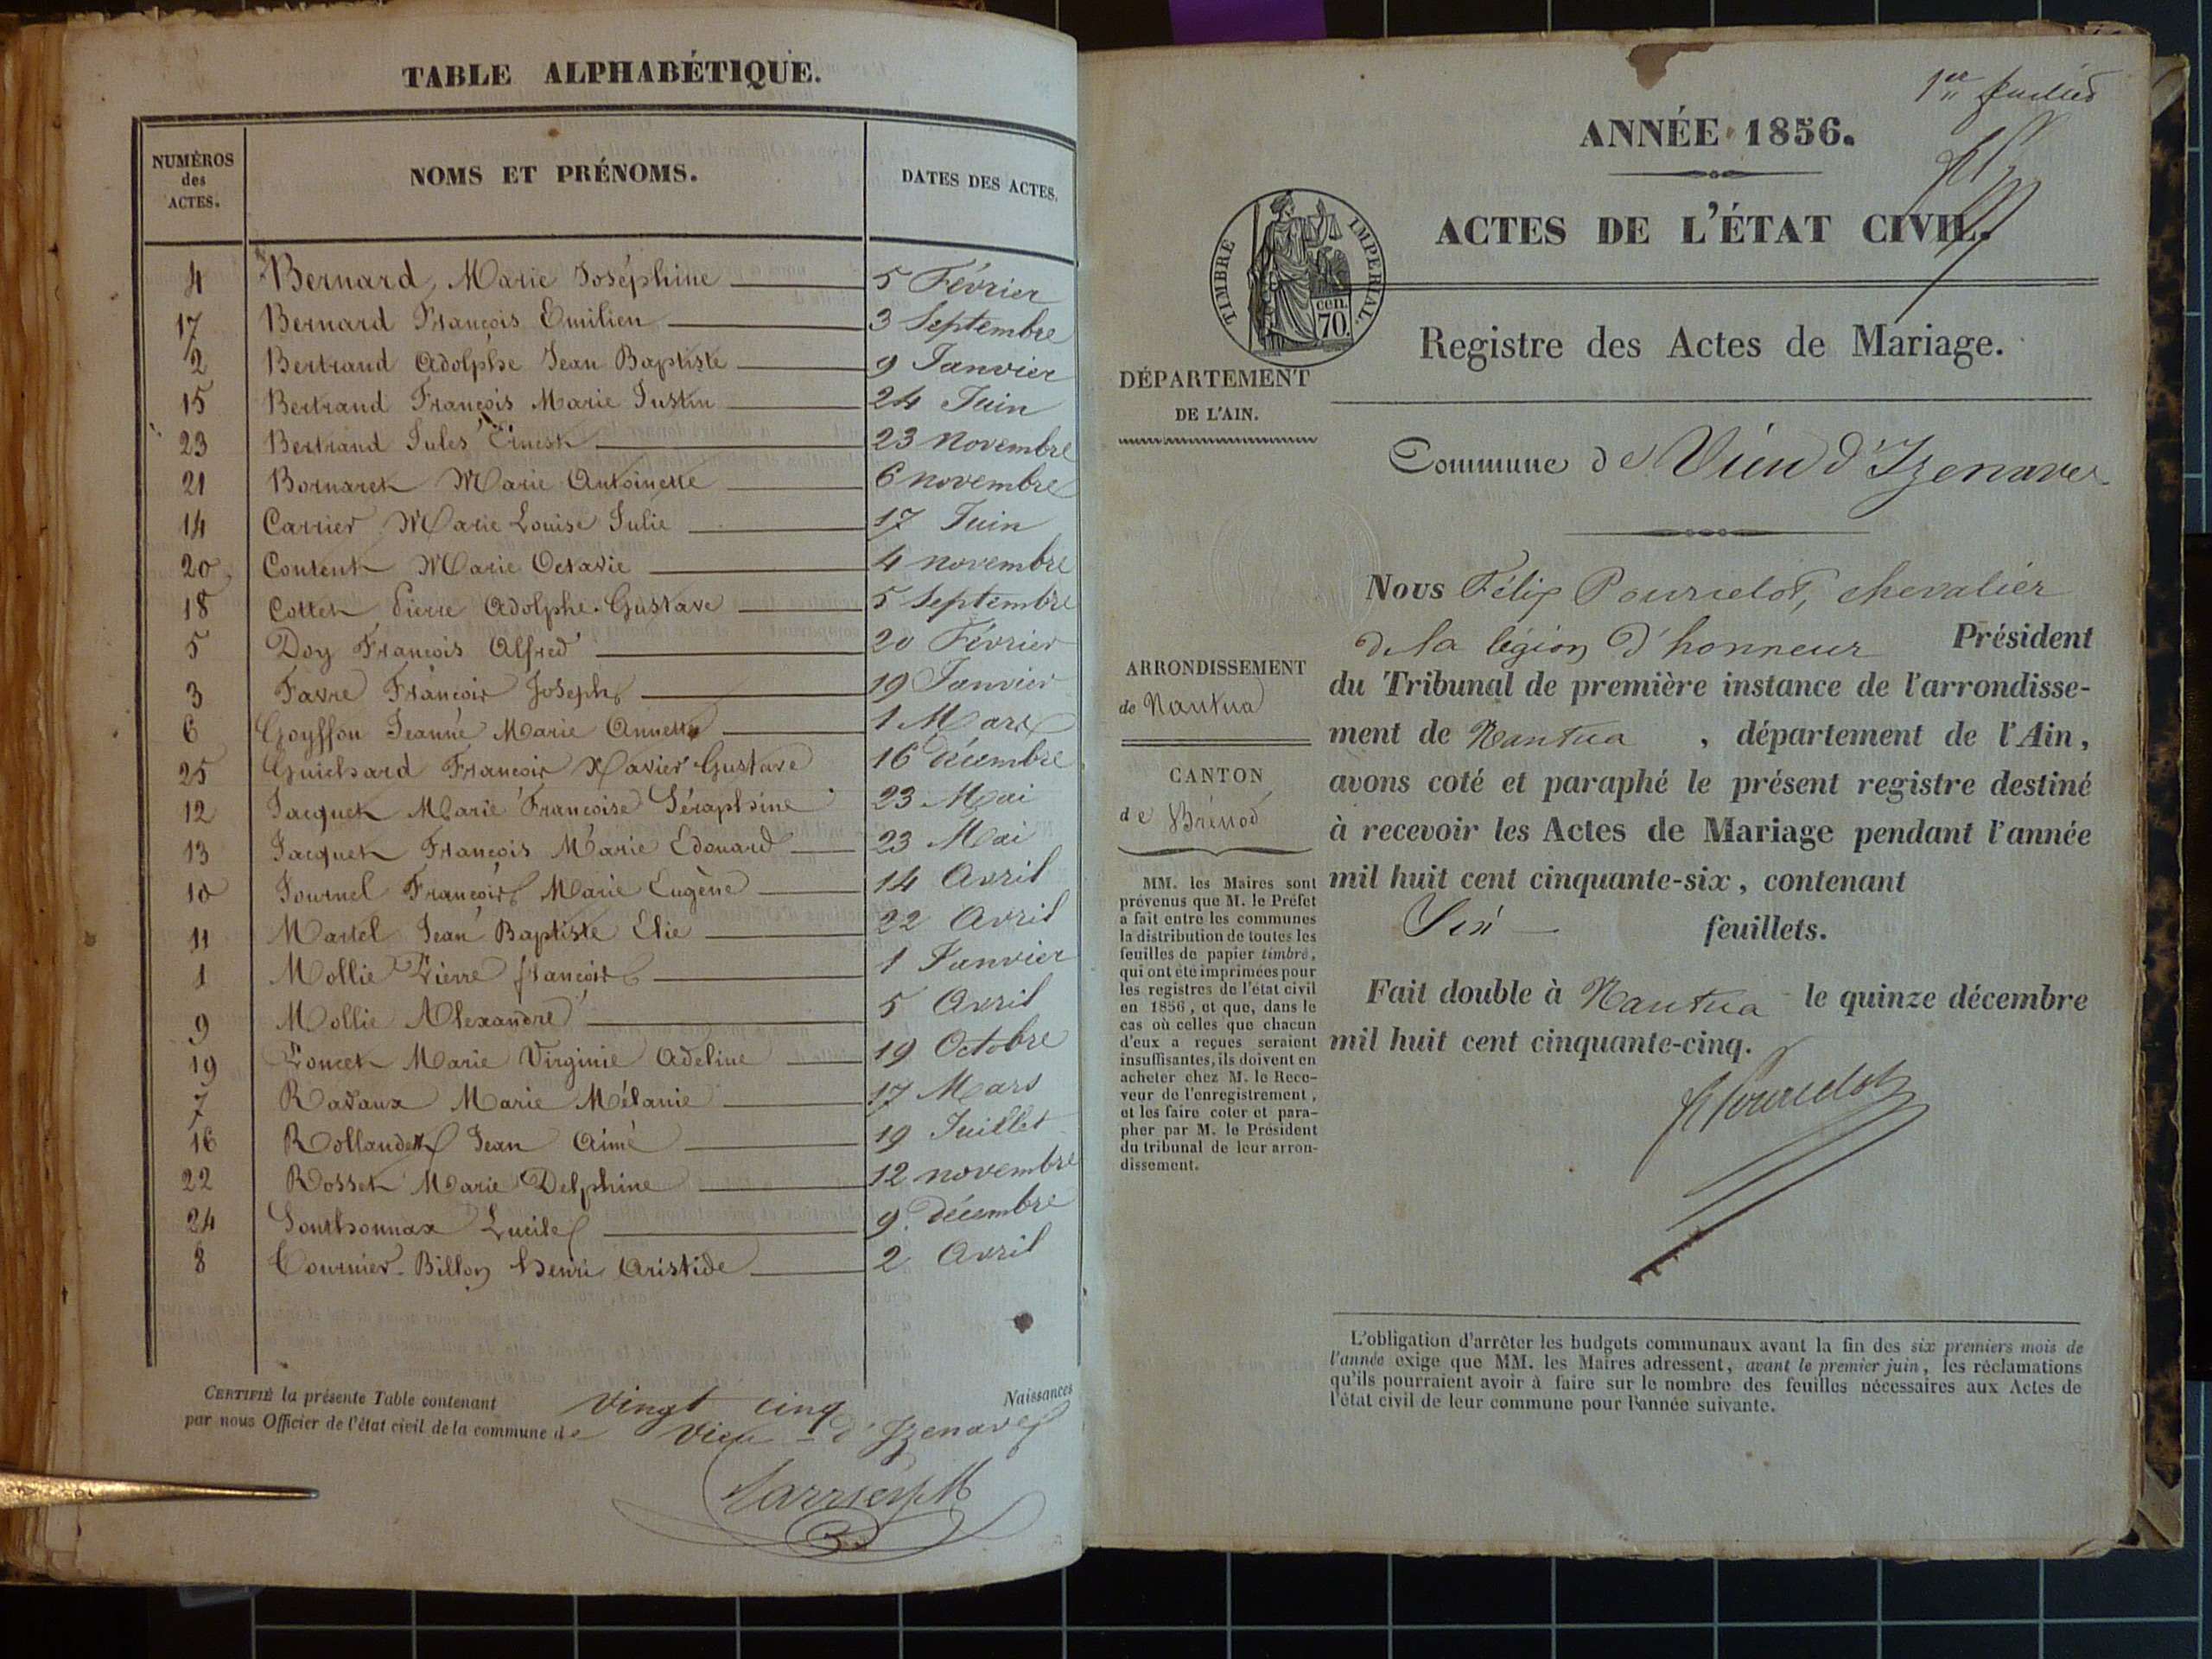 TABLE ALPHABÉTIQUE.
NUMÉROS des ACTES.
NOMS ET PRÉNOMS.
DATES DES ACTES.
4 Bernard, Marie Joséphine 5 Février
17 Bernard François Emilien 3 Septembre
2 Bertrand Adolphe Jean Baptiste 9 Janvier
15 Bertrand François Marie Justin 24 Juin
23 Bertrand Jules Ernest 23 novembre
21 Bornaret Marie Antoinette 6 novembre
14 Carrier Marie Louise Julie 17 Juin
20 Content Marie Octavie 4 novembre
18 Cottet Pierre Adolphe Gustave 5 Septembre
5 Doy François Alfred 20 Février
3 Favre François Joseph 19 Janvier
6 Goyffon Jeanne Marie Annette 1 Mars
25 Guichard François Xavier Gustave 16 décembre
12 Jacquet Marie Françoise Séraphine 23 Mai
13 Jacquet François Marie Edouard 23 Mai
10 Journel François Marie Eugène 14 Avril
11 Martel Jean Baptiste Elie 22 Avril
1 Mollie Pierre françois 1 Janvier
9 Mollie Alexandre 5 Avril
19 Poncet Marie Virginie Adeline 19 Octobre
7 Ravaux Marie Mélanie 17 Mars
16 Rollandet Jean Aimé 19 Juillet
22 Rosset Marie Delphine 12 novembre
24 Sonthonnax Lucile 9 décembre
8 Tournier-Billon henri Aristide 2 Avril
CERTIFIÉ la présente Table contenant vingt cinq Naissances
par nous Officier de l'état civil de la commune de Vieu-d'Izenave
1er feuillet
ANNÉE 1856.
ACTES DE L'ÉTAT CIVIL.
TIMBRE IMPERIAL.
cen.
70.
Registre des Actes de Mariage.
DÉPARTEMENT
DE L'AIN.
Commune de Vieu d'Izenave
Nous Félix Pourcelot, chevalier
de la légion d'honneur Président
du Tribunal de première instance de l'arrondisse-
ment de Nantua, département de l'Ain,
avons coté et paraphé le présent registre destiné
à recevoir les Actes de Mariage pendant l'année
mil huit cent cinquante-six, contenant
feuillets.
Fait double à Nantua le quinze décembre
mil huit cent cinquante-cinq.
Pourcelot
ARRONDISSEMENT
de Nantua
CANTON
de Brénod
MM. les Maires sont
prévenus que M. le Préfet
a fait entre les communes
la distribution de toutes les
feuilles de papier timbré,
qui ont été imprimées pour
les registres de l'état civil
en 1856, et que, dans le
cas où celles que chacun
d'eux a reçues seraient
insuffisantes, ils doivent en
acheter chez M. le Rece-
veur de l'enregistrement,
et les faire coter et para-
pher par M. le Président
du tribunal de leur arron-
dissement.
L'obligation d'arrêter les budgets communaux avant la fin des six premiers mois de
l'année exige que MM. les Maires adressent, avant le premier juin, les réclamations
qu'ils pourraient avoir à faire sur le nombre des feuilles nécessaires aux Actes de
l'état civil de leur commune pour l'année suivante.